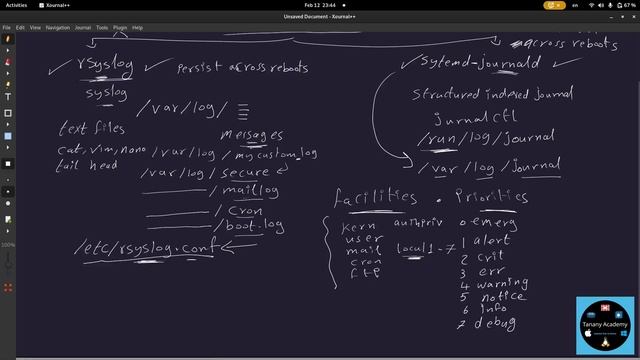 Activities
Xournal++
Feb 12 23:44
67 %
Unsaved Document - Xournal++
File Edit View Navigation Journal Tools Plugins Help
across reboots
rsyslog
persist across reboots
Sytemd-journald
syslog
Structured indexed journal
/var/log/
jurnal ctl
text files
meisages
/run/log/journal
cat, vim, nano
/var/log/mycustom_log
tail head
/var/log/secure
/var/log/journal
/maillog
facilities . Priorities
/cron
kern authpriv 0 emerg
/boot.log
user 1 alert
/etc/rsyslog.conf
mail local1-7 2 crit
cron 3 err
ftp 4 warning
5 notice
6 info
7 debug
100%
Tanany Academy